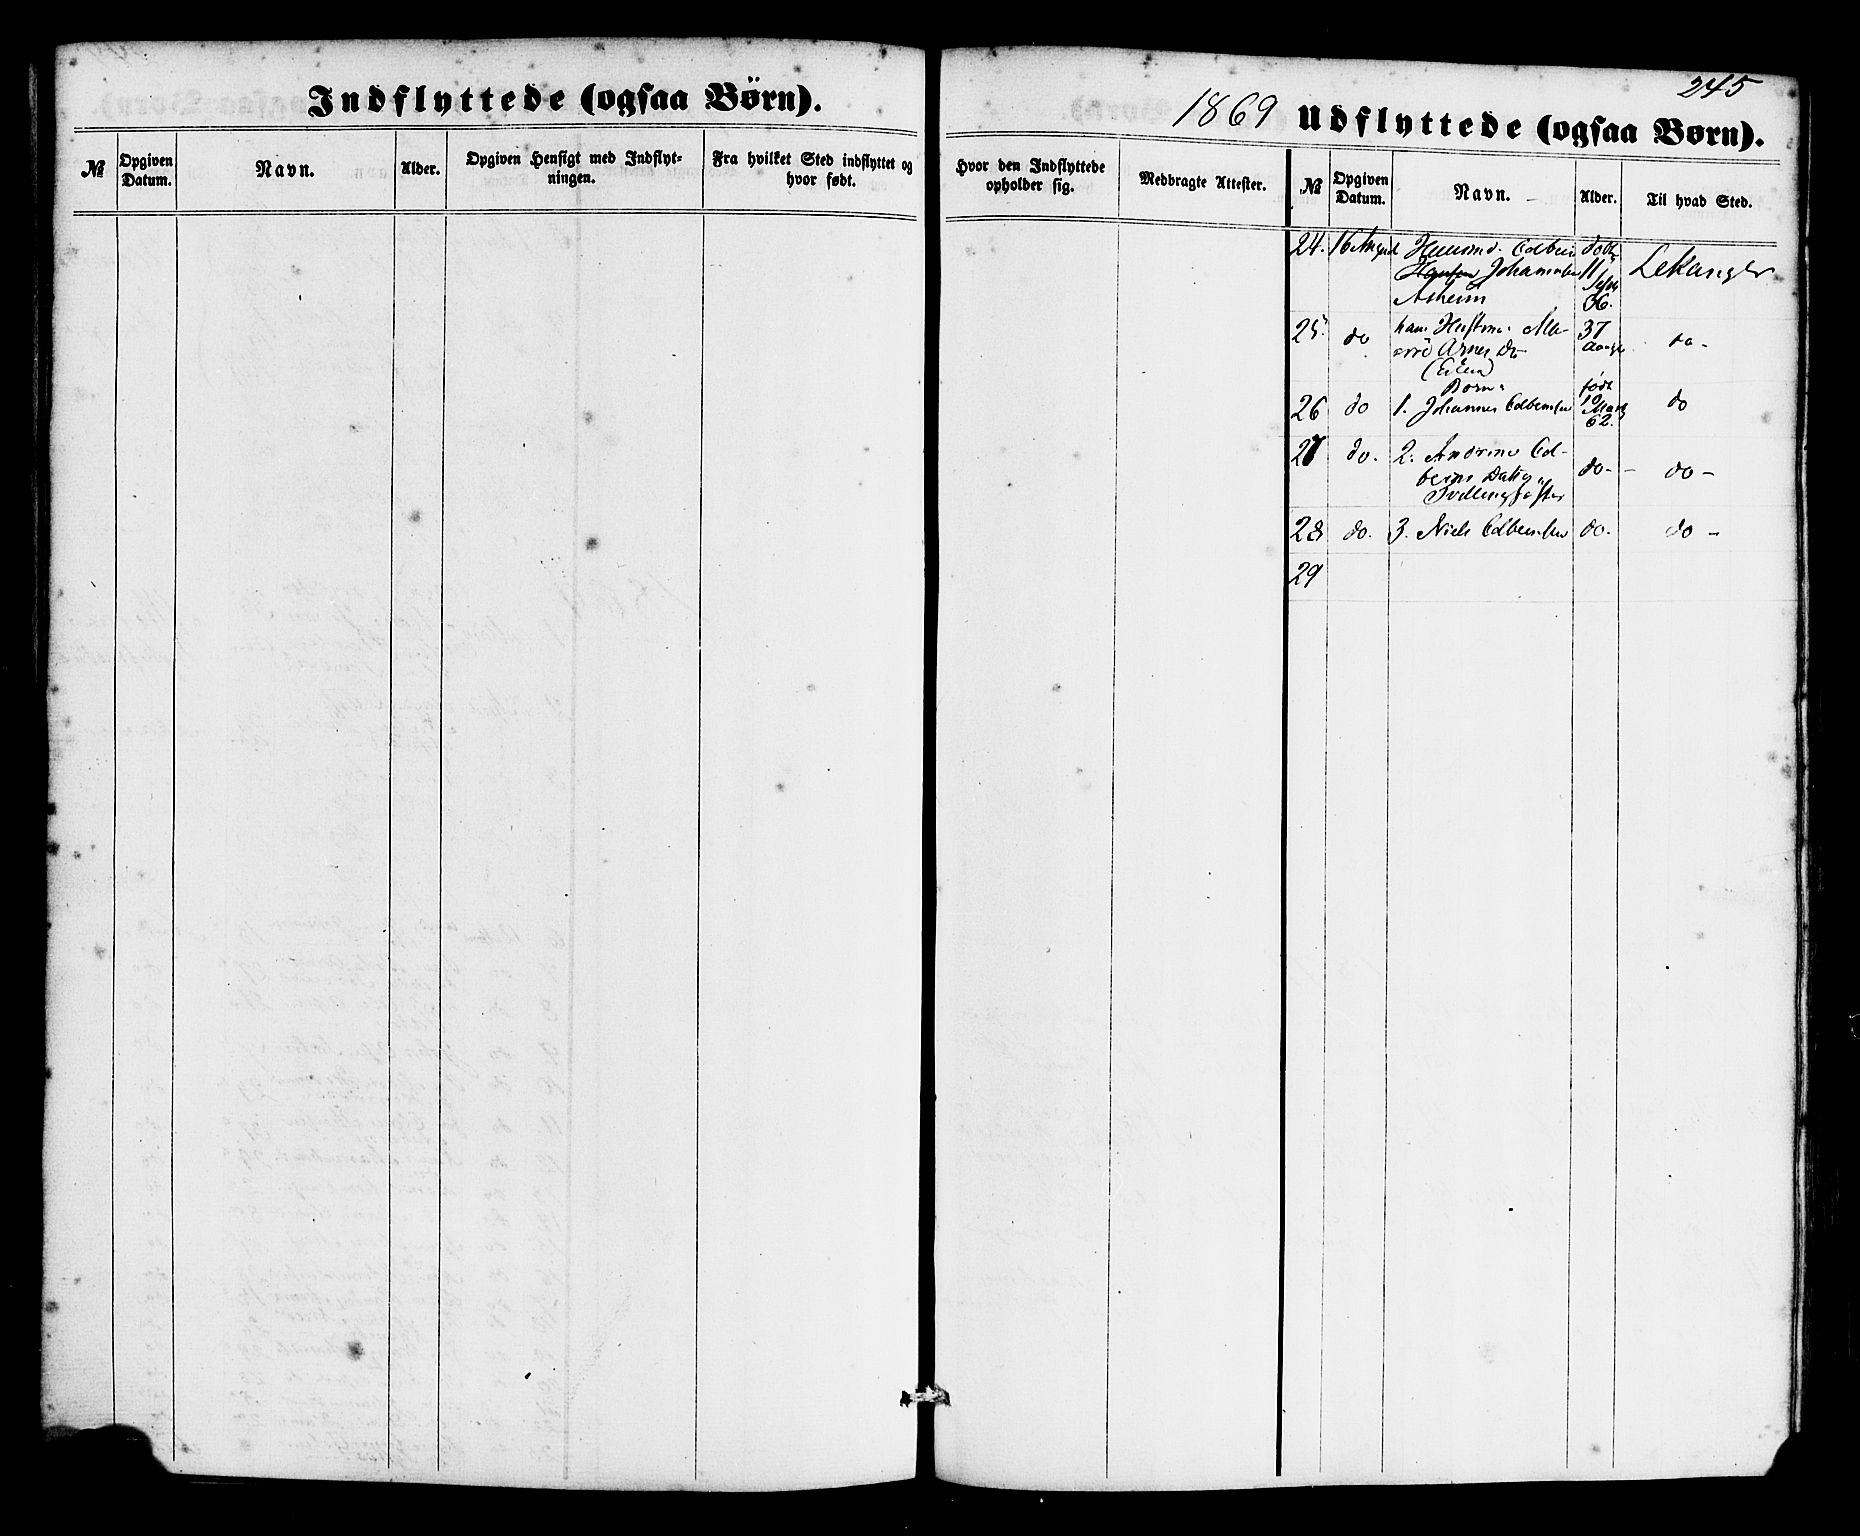 Indflyttede (ogsaa Børn).
№
Opgiven Datum.
Navn.
Alder.
Opgiven Hensigt med Indflyt-
ningen.
Fra hvilket Sted indflyttet og
hvor født.
245
1869 Udflyttede (ogsaa Børn).
Hvor den Indflyttede
opholder sig.
Medbragte Attester.
№
Opgiven Datum.
Navn.
Alder.
Til hvad Sted.
24. 16 August Huusmd. Edbem
Hansen Johannesen 11 Lekanger
Askeim 36.
25. do hans Hustru Ma- 37 do-
Arnes Dr
Børn: født
26 do 1. Johannes Edbemsen 10 Marts 62. do
27 do. 2. Andrine Ed- do- do-
bems Datter
Tvillingsøster
28 do. 3. Niels Edbemsen do. do-
29